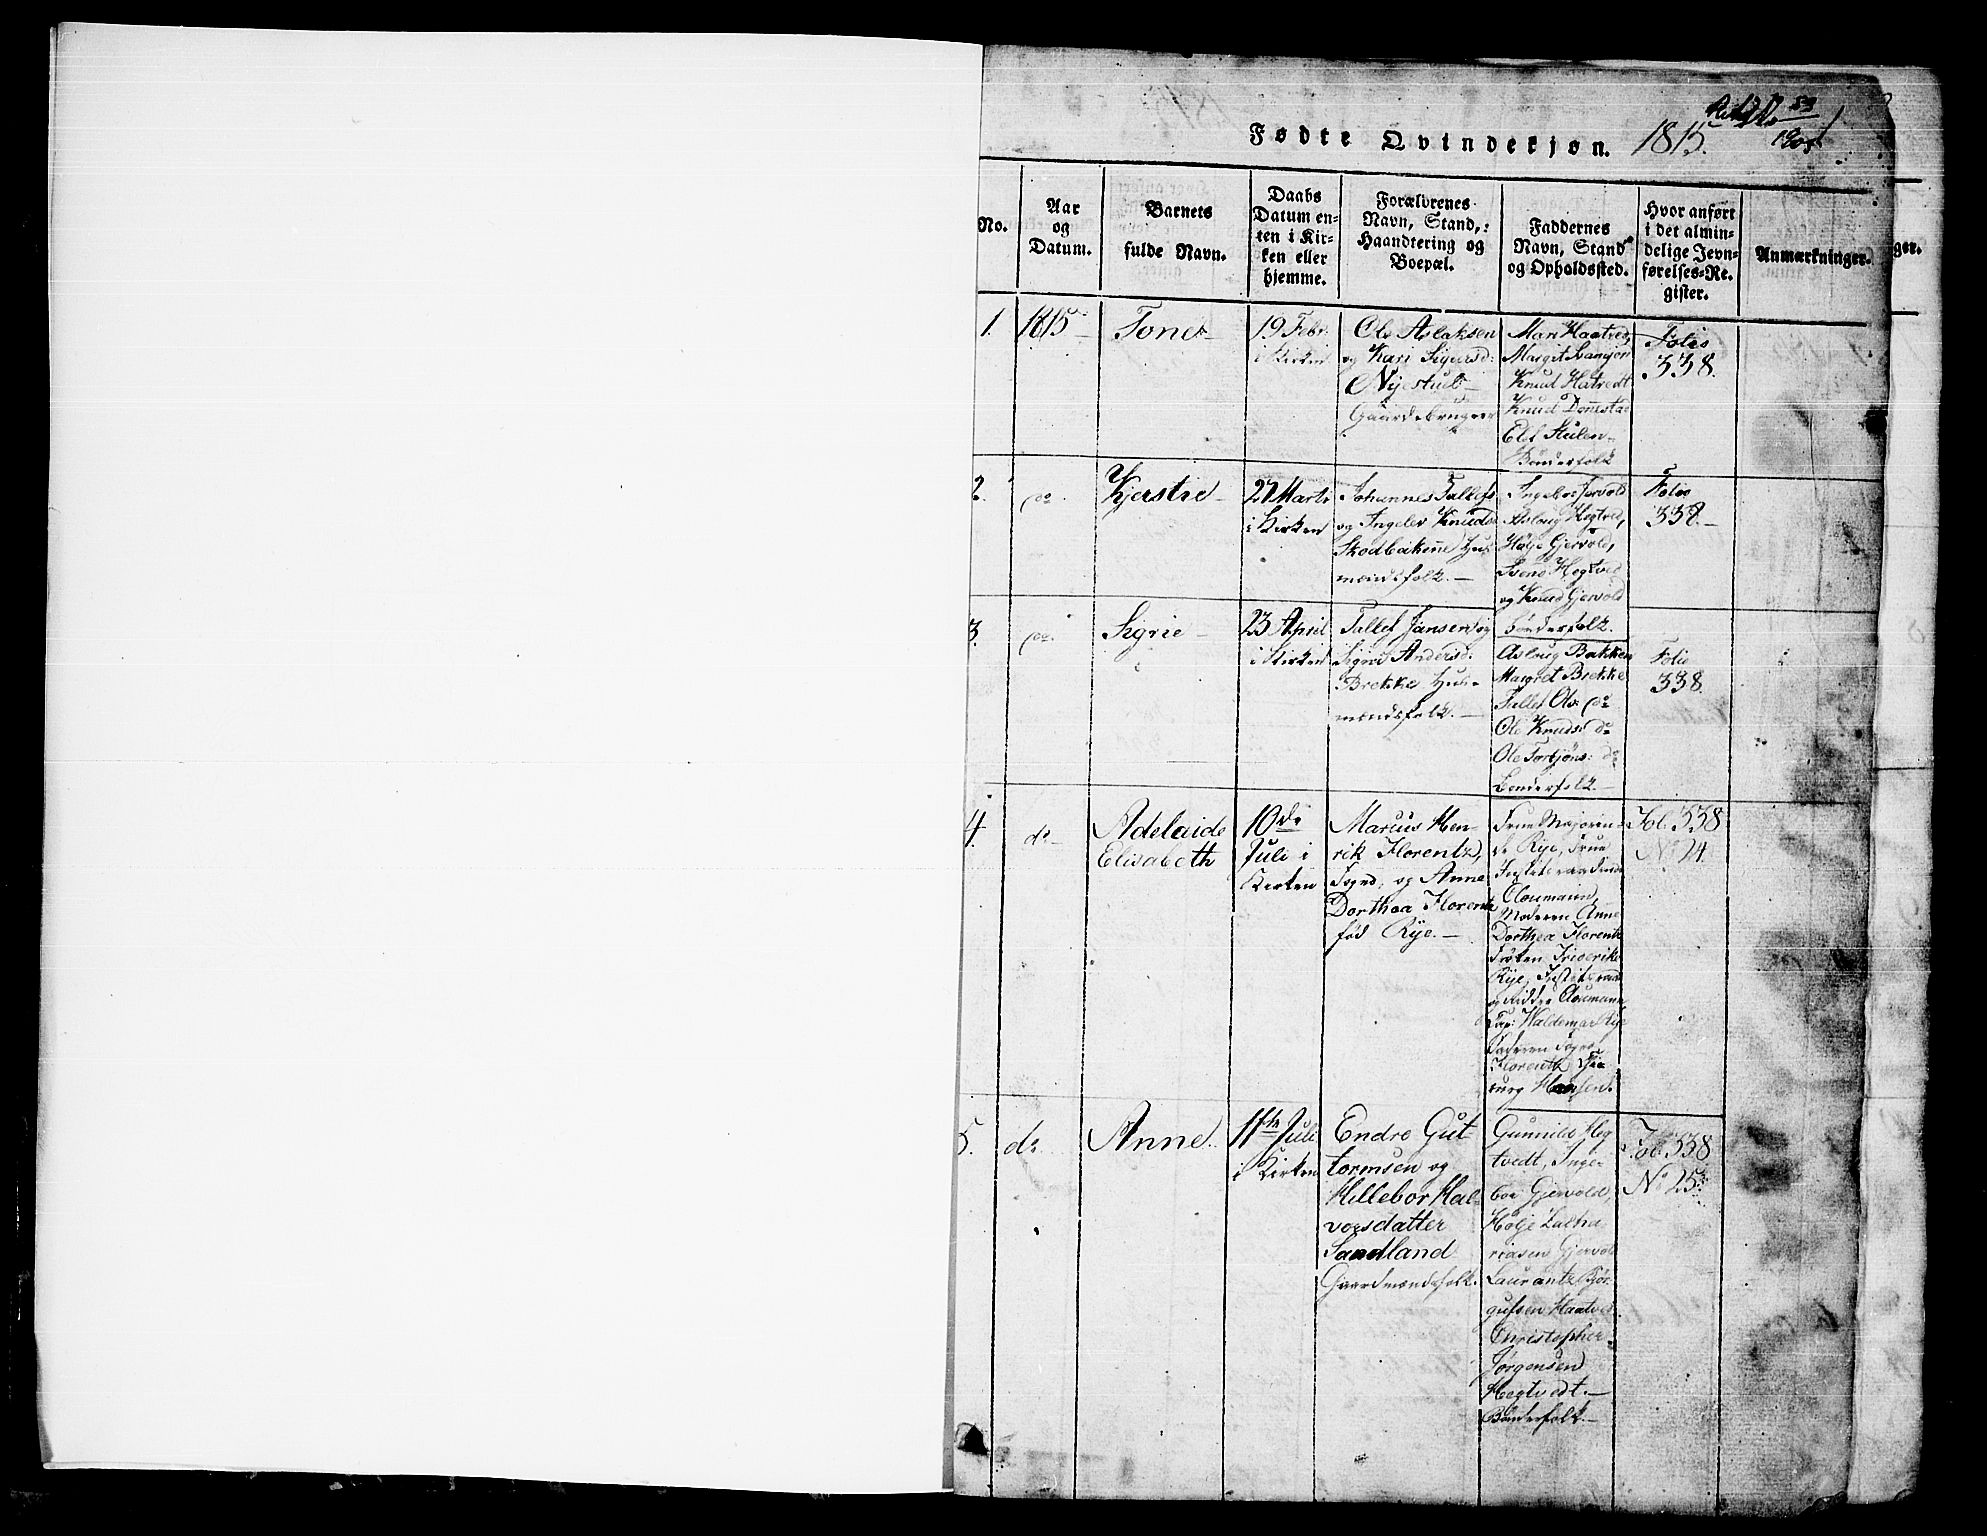 Fødte Qvindekjøn. 1815.
No.
Aar
og
Datum.
Barnets
fulde Navn.
Daabs
Datum en-
ten i Kir-
ken eller
hjemme.
Forældrenes
Navn, Stand,
Haandtering og
Boepæl.
Faddernes
Navn, Stand
og Opholdssted.
Hvor anført
i det almin-
delige Jevn-
førelses-Re-
gister.
Anmærkninger.
ger.
1.
1815
Tone
19 Febr.
i Kirken
Ole Aslaksen
og Kari Sigursd:
Nyestue
Gaardebruger
Mari Haatved,
Margit
Knud Hatvedt
Knud Dønnestad
Elef Stulen
Bønderfolk
Folio
338.
2.
do.
Kjerstie
27 Marts
i Kirken
Johannes Tallefs
og Ingeler Knuds
Skodbakene Hus
mændsfolk.
Ingebor Jervold
Aslaug Hegtved,
Hølje Gjervold,
Svend Hegtved
og Knud Gjervold
bønderfolk.
Folio
338.
3.
do.
Sigrie
23 April
i Kirken
Tallef Jansen og
Signe Andersd:
Brekke Hus-
mændsfolk.
Aslaug Bakken
Margret Brekke
Tallef Ols: do
Ole Knuds: do
Ole Torbjøns: do
Bønderfolk
Folio
338.
4.
do
Adelaide
Elisabeth
10de
Juli i
Kirken
Marcus Hen-
rik Florentz,
Foged, og Anne
Dorthea Florentz
fød Rye.
Frue Majorin-
de Rye, Frue
Justitsraadinde
Cloumann,
Moderen Anne
Dorthea Florentz
Frøken Friderike
Rye, Justitsraad
og Ridder Cloumann,
Cap: Waldemar Rye
Faderen Foged
Florentz
Hansen.
Fol. 338
No 24.
5.
do
Anne
11te Juli
i Kirken
Endre Gut-
tormsen og
Hellebor Hal-
vorsdatter
Sandland
Gaardmændsfolk.
Gunnild Heg
tvedt, Inge-
bor Gjervold,
Hølje Zacha
riasen Gjervold
Laurantz Bjør-
gufsen Haatved
Christopher
Jørgensen
Hegtvedt.
Bønderfolk
Fol. 338
No 25.